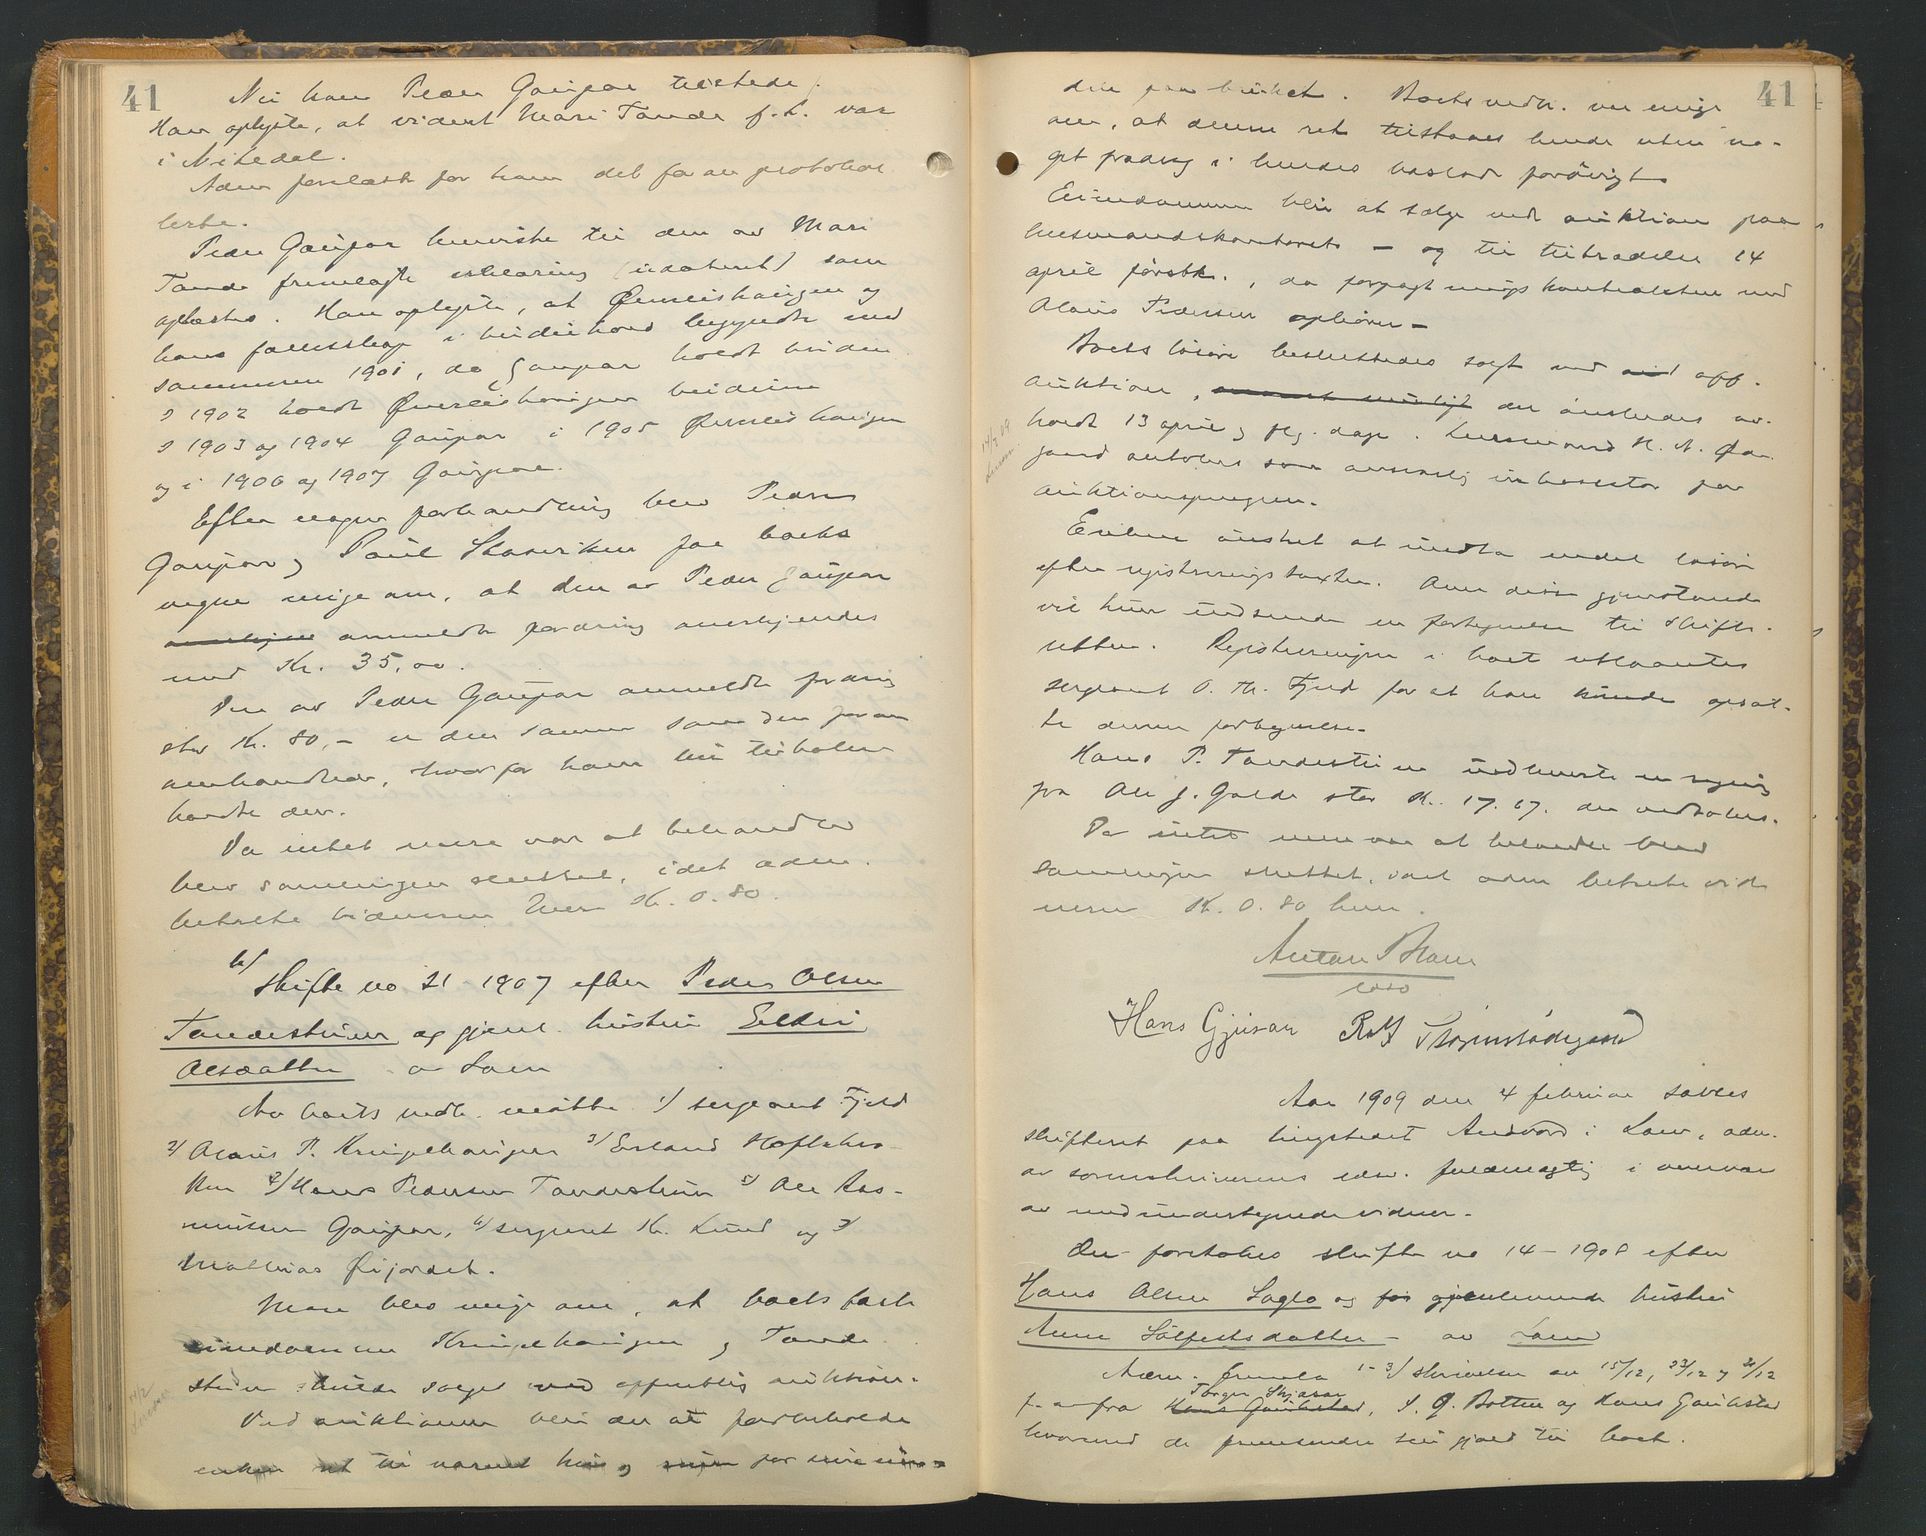 41
Nu kom Peder Gaupar tilstede.
Han oplyste, at vidnet Mari Tande f. t. var
i Nitedal.
Adm. forelæste for ham det foran protokol-
lerte.
Peder Gaupar henviste til den av Mari
Tande fremlagte erklæring (udateret) som
oplæstes. Han oplyste, at Øverlishaugen og
hans fællesskap i beidehold begyndte med
sommeren 1901, da Gaupar holdt beiden
I 1902 holdt Øverlishaugen beidene
I 1903 og 1904 Gaupar i 1905 Øverlishaugen
og i 1906 og 1907 Gaupar.
Efter nogen forhandling blev Peder
Gaupar og Paul Skaareiken for boets
vegne enige om, at den av Peder Gaupar
anmeldte fordring anerkjendes
med Kr. 35,00.
Den av Peder Gaupar anmeldte fordring
stor Kr. 80,- er den samme som den foran
omhandlede, hvorfor han
den.
Da intet mere var at behandle
blev samlingen sluttet, idet adm.
betalte vidnerne hver Kr. 0.80.
b/
Skifte no 21 - 1907 efter Peder Olsen
Tandestuen og gjenl. hustru Eldri
Olsdatter av Lom
Av boets vedk. møtte 1/ sergeant Fjeld
2/ Olaus P. Kringelhaugen 3/ Erland Hoftebra-
ken 4/ Hans Pedersen Tandestuen 5/ Ole Ras-
mussen Gaupar, 6/ sergeant Kr. Lund og 7/
Mathias Øijordet.
Man blev enige om, at boets faste
eiendomme Kringelhaugen og Tande-
stuen skulde sælges ved offentlig auktion.
Ved auktionen blir der at forbeholde
enken ret til varmt hus og for sine
41
dele paa bruket. Boets vedk. var enige
om, at denne ret tilstaaes hende uten no-
get fradrag i hendes boslod forøvrigt
Eiendommene blir at sælge ved auktion paa
lensmandskontoret - og til tiltrædelse 14
april førstk., da forpagtningskontrakten med
Olaus Pedersen ophører -
Boets løsøre besluttedes solgt ved off.
auktion, der ønskedes av-
holdt 13 april og flg. dage. Lensmand H. N. Øy-
gard antokes som ansvarlig inkassator for
auktionspengene.
Enken ønsket at undta endel løsøre
efter registreringstaxten. Over disse gjenstande
vil hun indsende en fortegnelse til skifte-
retten. Registreringen i boet utlaantes
sergeant O. Th. Fjeld for at han kunde opsæt-
te denne fortegnelse.
Hans P. Tandestuen indleverte en regning
fra Ole J. Galde stor Kr. 17.17. der vedtokes.
Da intet mere var at behandle blev
samlingen sluttet, idet adm betalte vid-
nerne Kr. 0.80 hver.
Anton Blom
const
Hans Gjeisar Rolf Skjømstadgard
Aar 1909 den 4 februar sattes
skifteret paa tingstedet Andvord i Lom, adm.
av sorenskriverens edsv. fuldmægtig i overvær
av medundertegnede vidner.
Der foretokes skifte no 14 - 1908 efter
Hans Olsen Soglo og gjenlevende hustru
Anne Sølfestsdatter - av Lom
Adm. fremla 1-3/ skrivelser av 15/12, 23/12 og 21/12
f. a. fra Torger Skjaar, S. G. Botten og Hans Gaukstad
hvorved de fremsendte sin gjæld til boet.